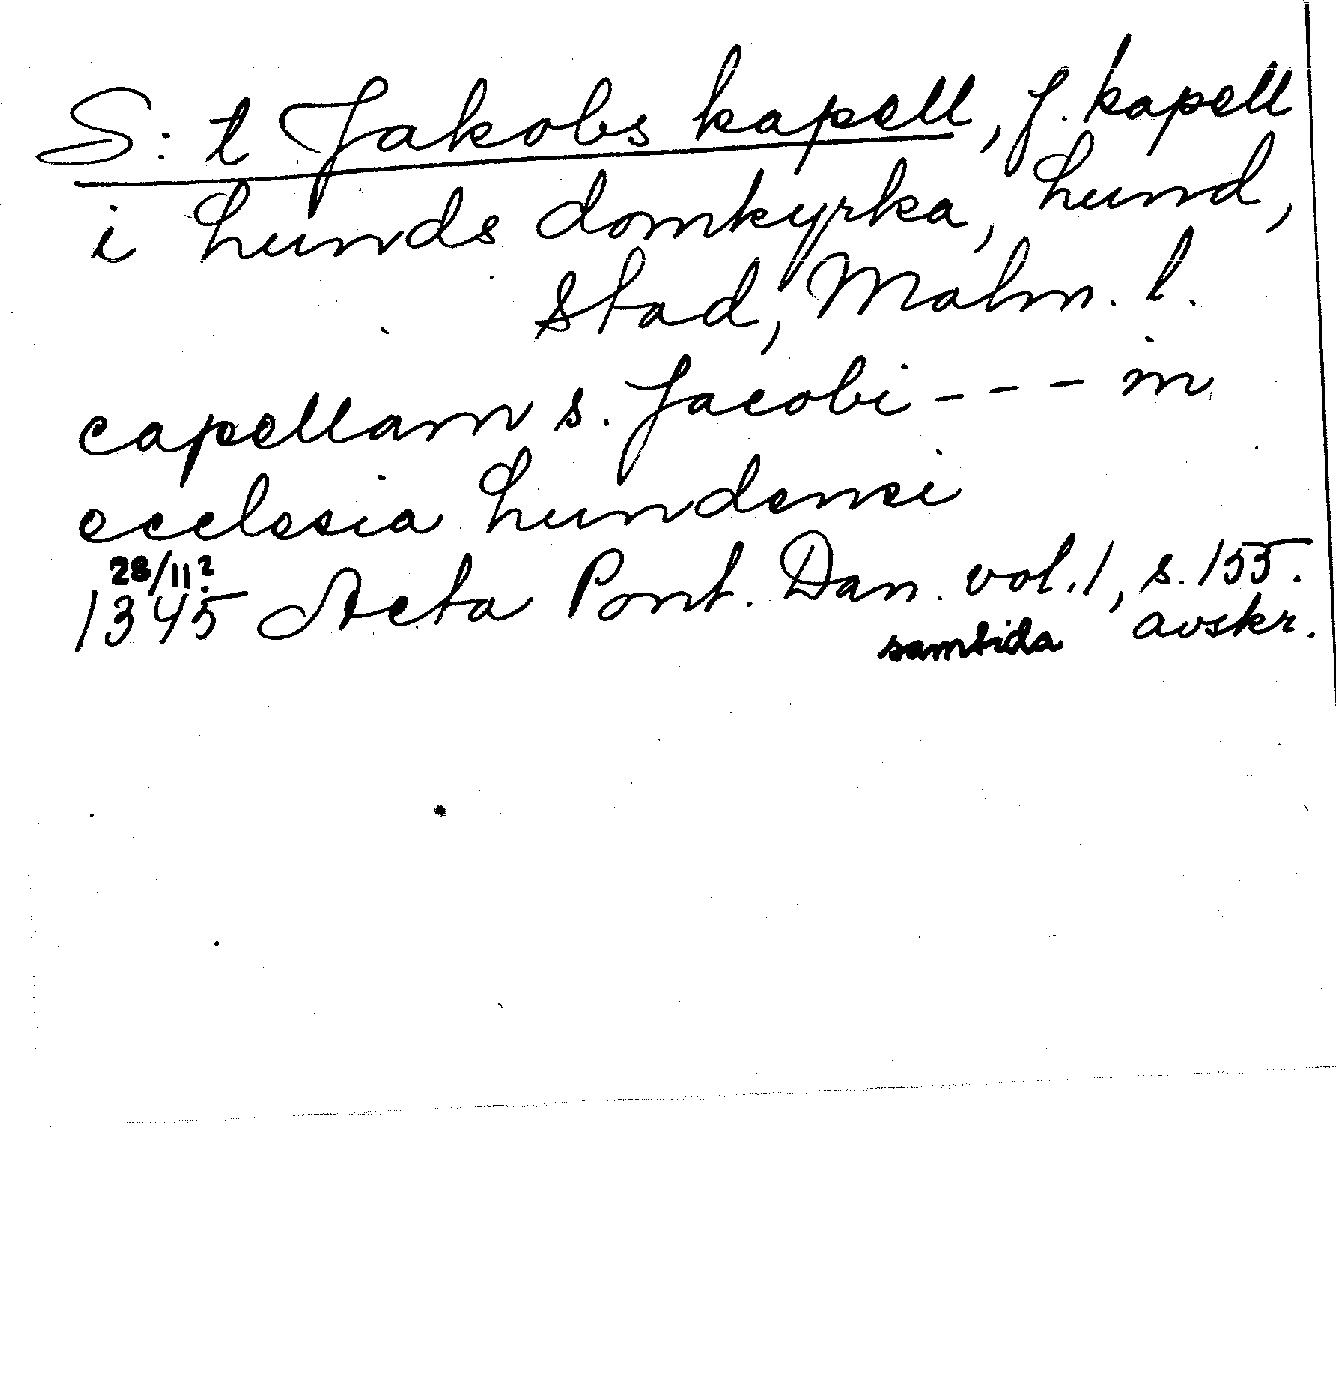 S:t Jakobs kapell, f. kapell
i Lunds domkyrka, Lund,
stad, Malm. l.
capellam s. Jacobi - - - in
ecclesia Lundensi
28/11?
1345 Acta Pont. Dan. vol. 1, s. 155.
samtida avskr.